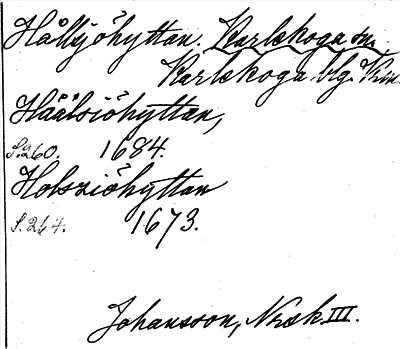 Hållsjöhyttan. Karlskoga sn.
Karlskoga blg. Vrm.
Håålsiöhyttan,
S. 260. 1684.
Holsziöhyttan
S. 264. 1673.
Johansson, Norask. III.